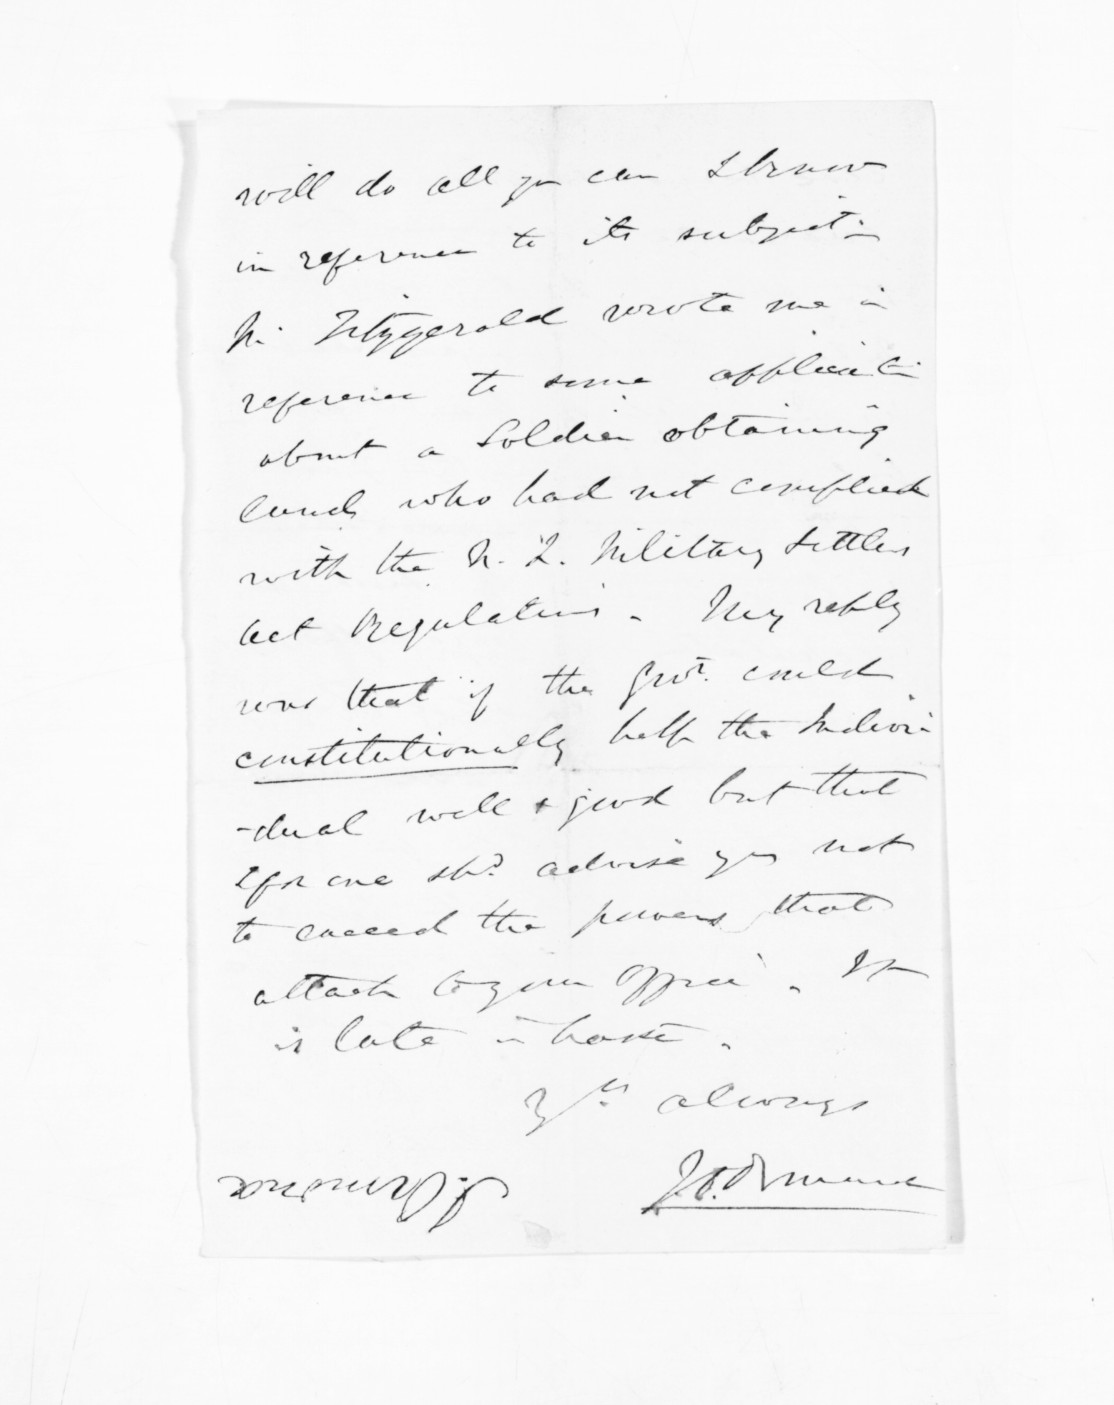 will do all you can I know
in reference to its subject -
Mr Fitzgerald wrote me in
reference to some application
about a Soldier obtaining
land, who had not complied
with the N. Z. Military Settlers
Act Regulations. My reply
was that if the Govt. could
constitutionally help the Indivi
-dual well & good but that
I for one shd. advise you not
to exceed the powers that
attach to your Office. I
is late in haste.
Yrs always
J.D. Ormond
J. Ormond